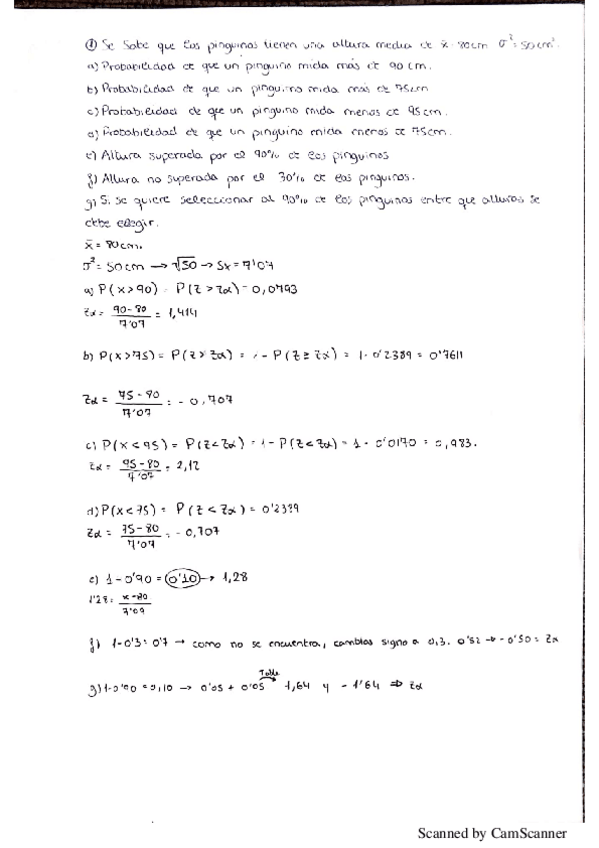 ① Se sabe que los pinguinos tienen una altura media de x̄: 80cm σ²=50cm².
a) Probabilidad de que un pinguino mida más de 90 cm.
b) Probabilidad de que un pinguino mida más de 75cm
c) Probabilidad de que un pinguino mida menos de 95cm.
d) Probabilidad de que un pinguino mida menos de 75cm.
e) Altura superada por el 90% de los pinguinos
f) Altura no superada por el 30% de los pinguinos.
g) Si se quiere seleccionar al 90% de los pinguinos entre que alturas se
debe elegir.
x̄ = 80cm.
σ² = 50cm → √50 → Sx = 7'07
a) P(x>90) = P(z>zα) = 0,0793
zα = 90-80 / 7'07 = 1,414
b) P(x>75) = P(z>zα) = 1 - P(z≥zα) = 1 - 0'2389 = 0'7611
zα = 75-80 / 7'07 = -0,707
c) P(x<95) = P(z<zα) = 1 - P(z<zα) = 1 - 0'0170 = 0,983.
zα = 95-80 / 7'07 = 2,12
d) P(x<75) = P(z<zα) = 0'2389
zα = 75-80 / 7'07 = -0,707
e) 1-0'90 = 0'10 → 1,28
1'28 = x-80 / 7'07
f) 1-0'3 = 0'7 → como no se encuentra, cambias signo a 0,3. 0'52 → -0'50 = zα
Tabla
g) 1-0'90 = 0,10 → 0'05 + 0'05 1,64 y -1'64 ⇒ zα
Scanned by CamScanner